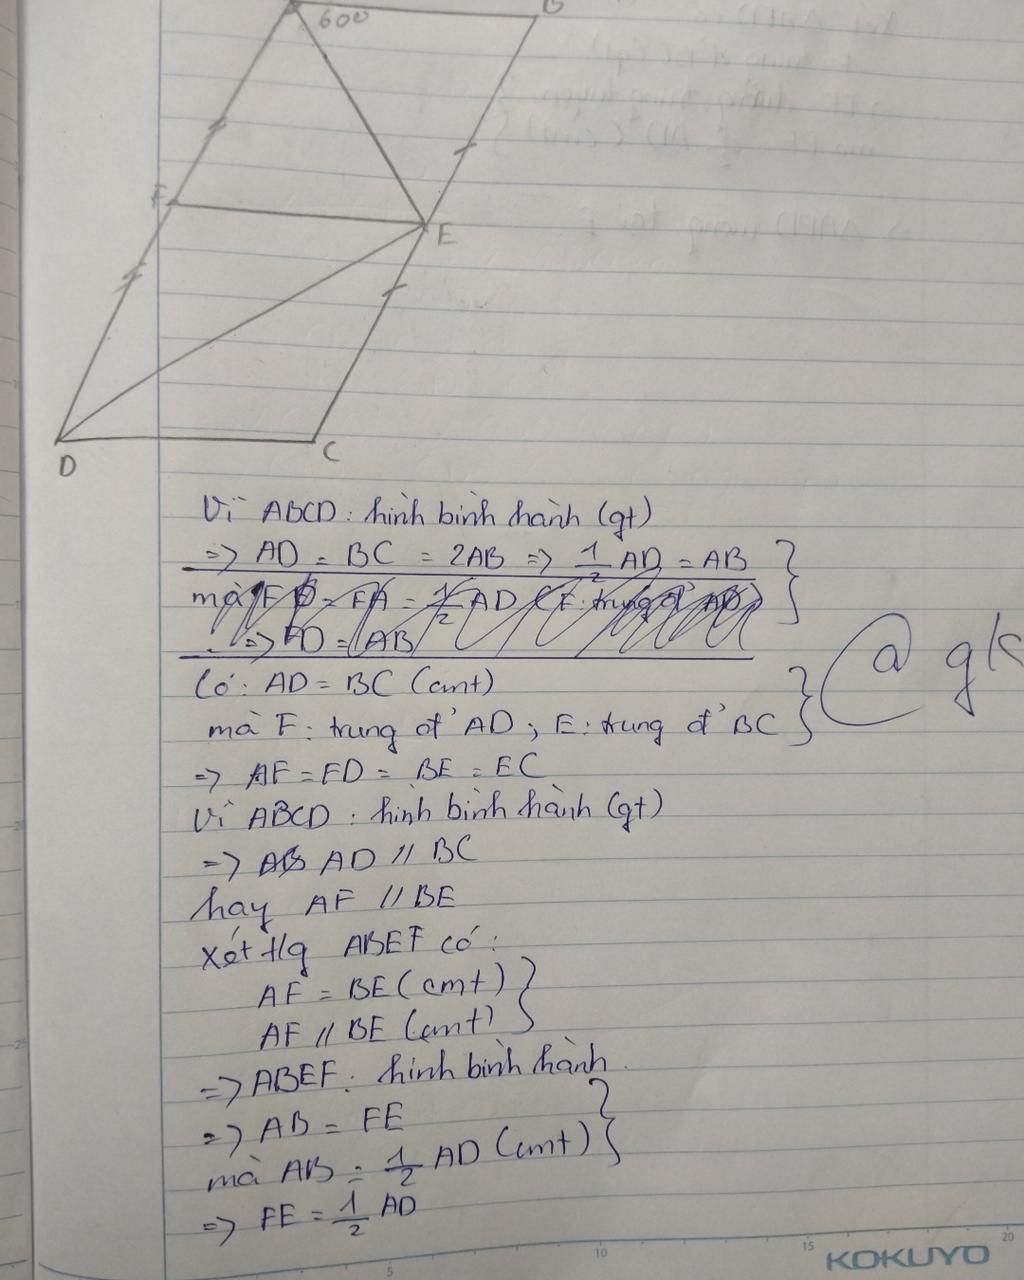 600
B
F
E
D
C
Vì ABCD: hình bình hành (gt)
=> AD = BC = 2AB => 1/2 AD = AB
mà FD = FA = 1/2 AD (F: trung đ' AD)
=> FD = AB
Có: AD = BC (cmt)
mà F: trung đ' AD; E: trung đ' BC
=> AF = FD = BE = EC
Vì ABCD: hình bình hành (gt)
=> AB AD // BC
hay AF // BE
Xét t/g ABEF có:
AF = BE (cmt)
AF // BE (cmt)
=> ABEF: hình bình hành.
=> AB = FE
mà AB = 1/2 AD (cmt)
=> FE = 1/2 AD
5
10
15
20
KOKUYO